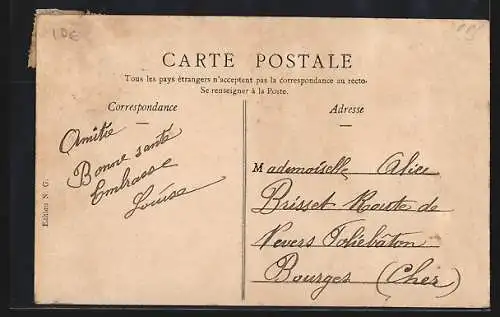 IDE
CARTE POSTALE
Tous les pays étrangers n'acceptent pas la correspondance au recto.
Se renseigner à la Poste.
Correspondance
Adresse
Amitié
Bonne santé
Embrasse
Louisa
Mademoiselle Alice
Brisset Route de
Nevers Foliebâton
Bourges (Cher)
Edition N. G.